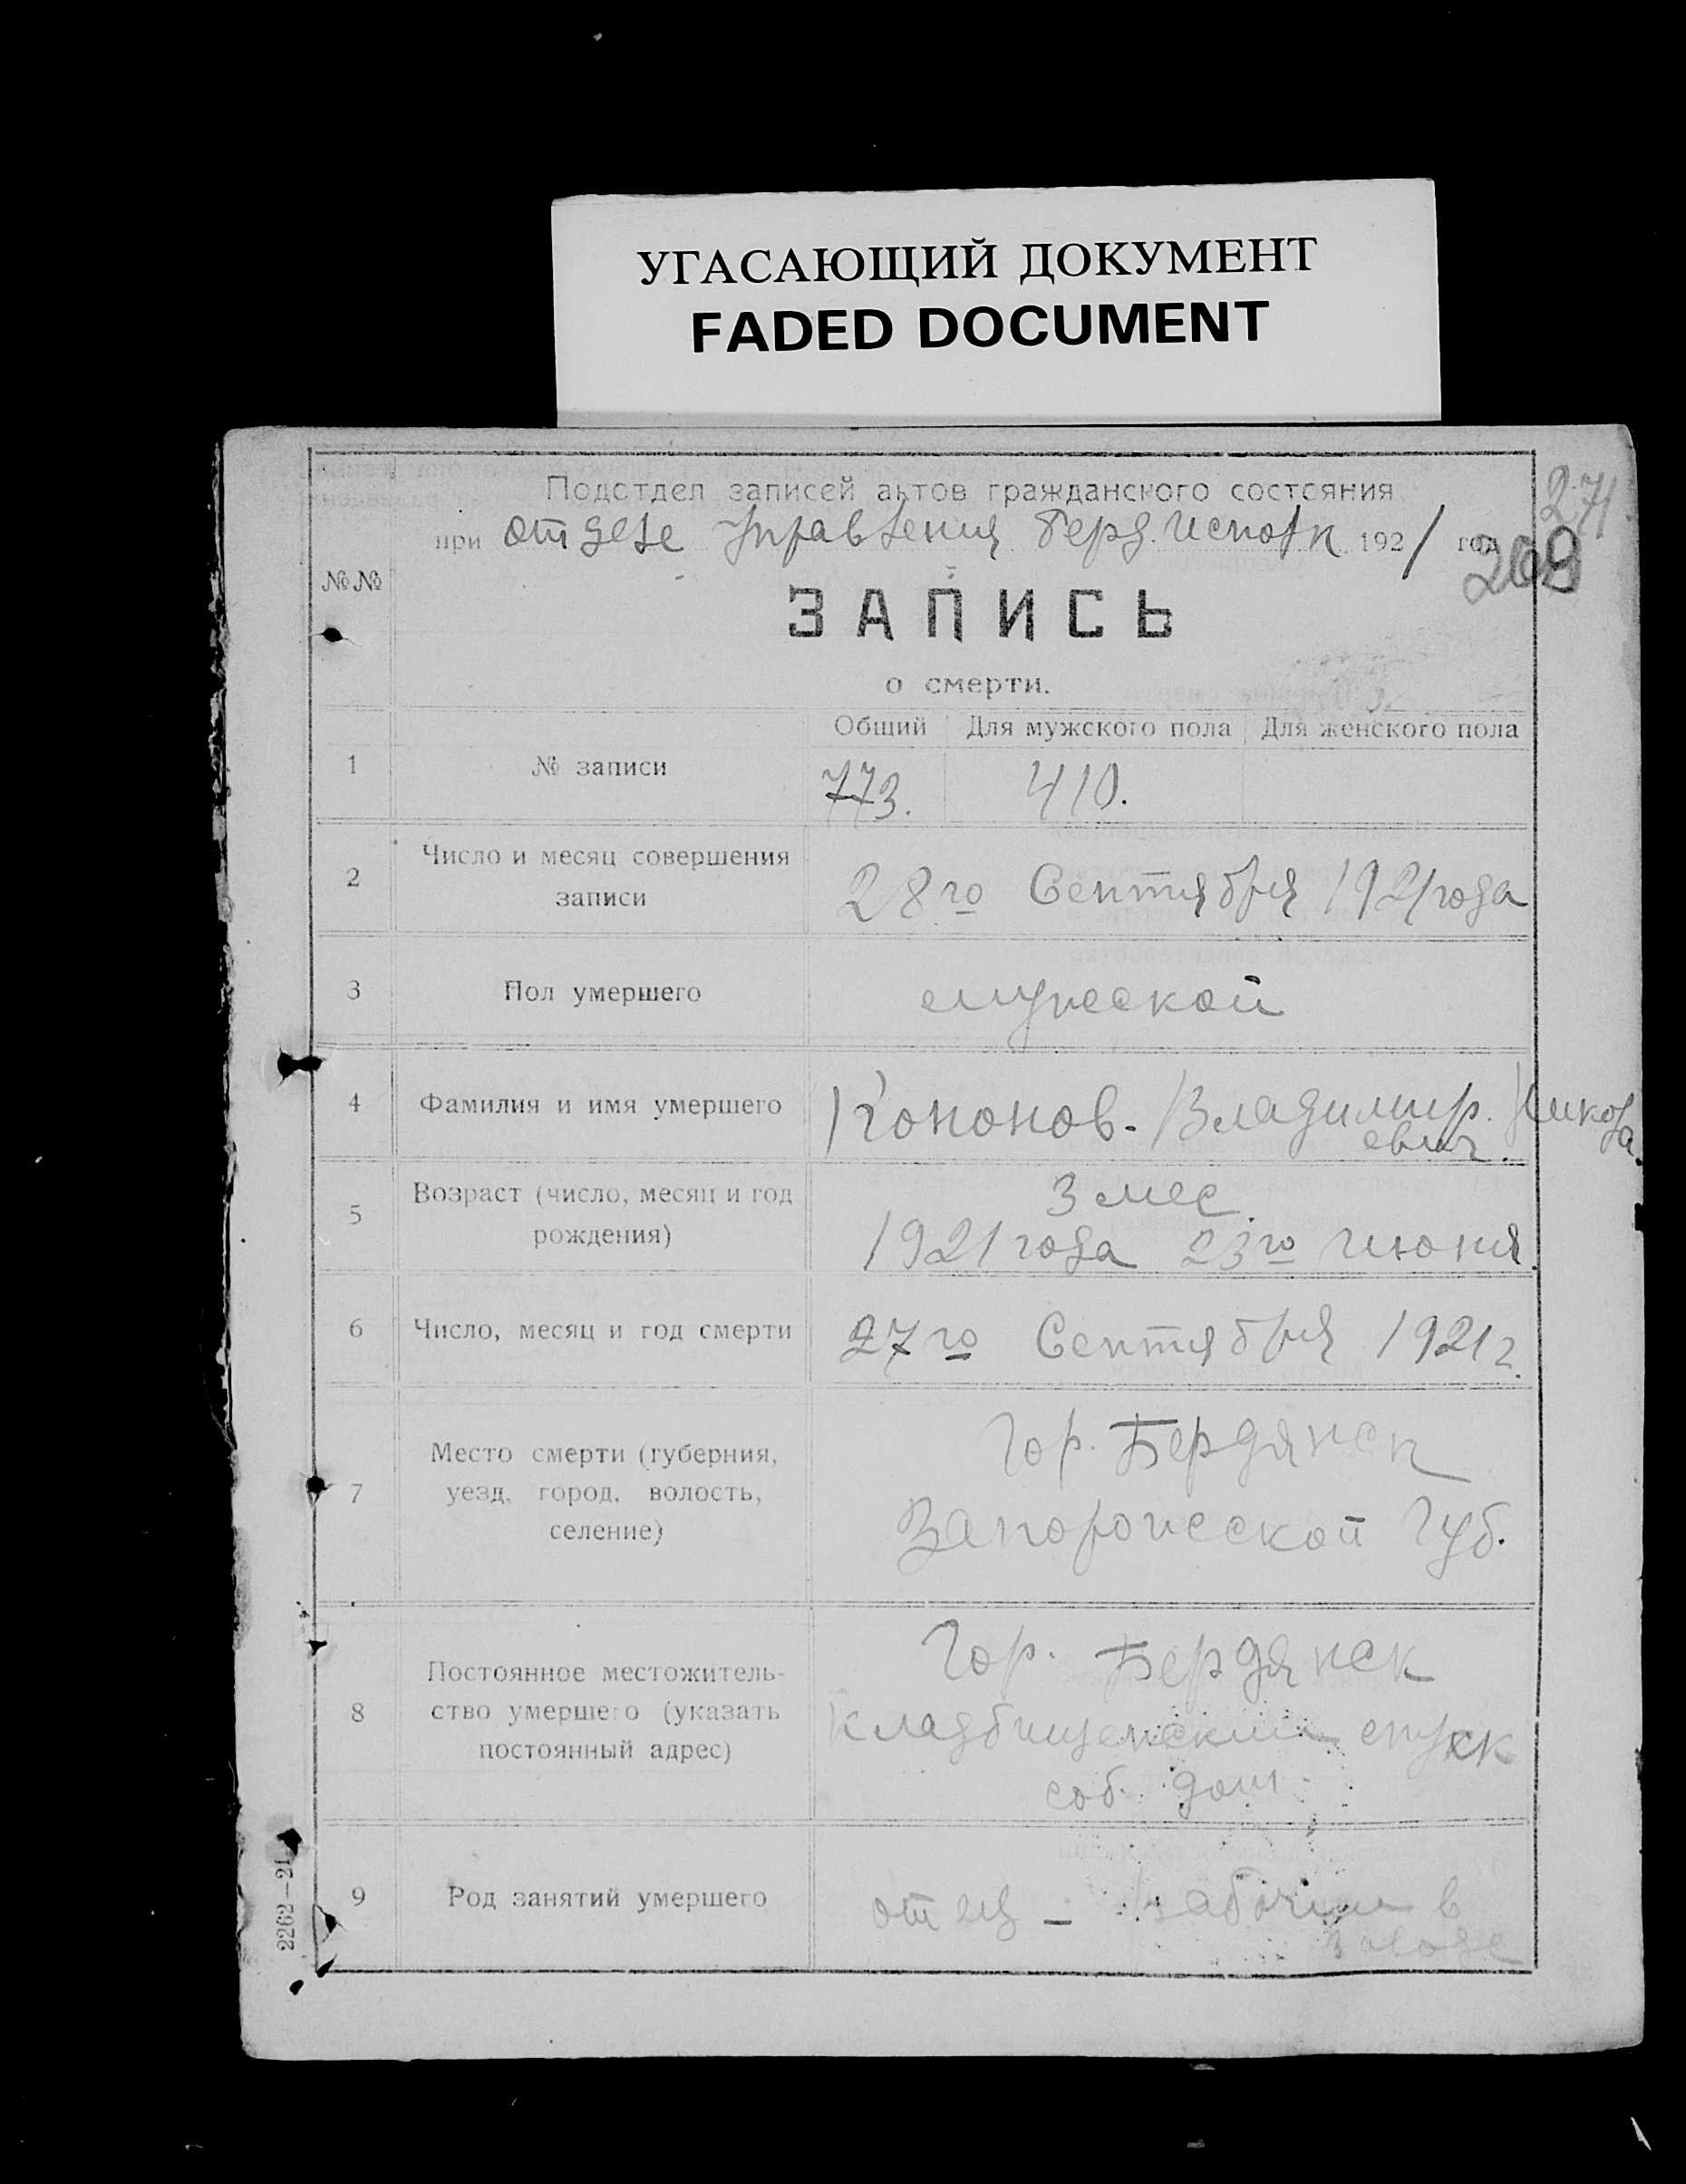 УГАСАЮЩИЙ ДОКУМЕНТ
FADED DOCUMENT
271
Подотдел записей актов гражданского состояния
при отделе Управления Берд. Исполк 1921 год
269
№№
ЗАПИСЬ
о смерти.
Общий Для мужского пола Для женского пола
1 № записи 773. 410.
2 Число и месяц совершения
записи
28го Сентября 1921 года
3 Пол умершего мужской
4 Фамилия и имя умершего Кононов. Владимир. Никола
евич.
5 Возраст (число, месяц и год
рождения)
3 мес.
1921 года 23го июня
6 Число, месяц и год смерти 27го Сентября 1921 г.
7 Место смерти (губерния,
уезд, город, волость,
селение)
Гор. Бердянск
Запорожской Губ.
8 Постоянное местожитель-
ство умершего (указать
постоянный адрес)
Гор. Бердянск
Кладбищенский спуск
соб. дом
9 Род занятий умершего отец — рабочий в
заводе
2262—21